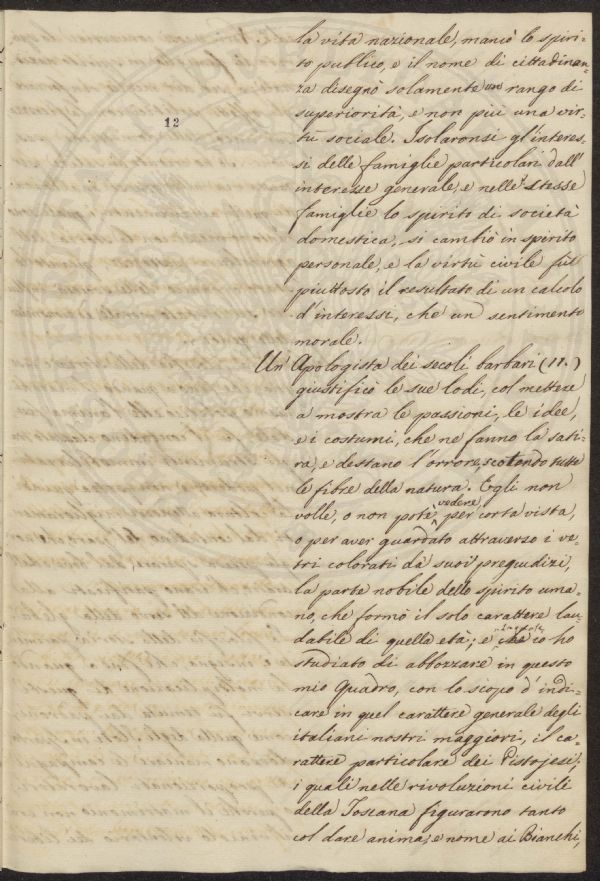 la vita nazionale, mancò lo spiri-
to publico, e il nome di cittadinan-
za disegnò solamente un rango di
12
superiorità, e non più una vir-
tù sociale. Isolaronsi gl'interes-
si delle famiglie particolari dall'
interesse generale, e nelle stesse
famiglie lo spirito di società
domestica, si cambiò in spirito
personale, e la virtù civile fù
piuttosto il resultato di un calcolo
d'interessi, che un sentimento
morale.
Un Apologista dei secoli barbari (11.)
giustificò le sue lodi, col mettere
a mostra le passioni, le idee,
e i costumi, che ne fanno la sati-
ra, e destano l'orrore, scotendo tutte
le fibre della natura. Egli non
volle, o non potè vedere per corta vista,
o per aver guardato attraverso i ve-
tri colorati dà suoi pregiudizi,
la parte nobile dello spirito uma-
no, che formò il solo carattere lau-
dabile di quella età; e che io ho
studiato di abbozzare in questo
mio Quadro, con lo scopo d'indi-
care in quel carattere generale degli
italiani nostri maggiori, il ca-
rattere particolare dei Pistojesi,
i quali nelle rivoluzioni civili
della Toscana figurarono tanto
col dare anima, e nome ai Bianchi,